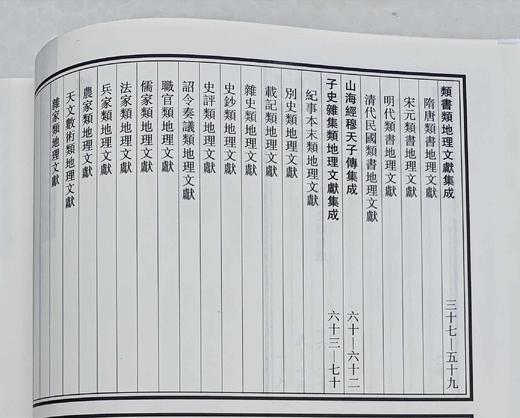 類書類地理文獻集成 三十七—五十九
隋唐類書地理文獻
宋元類書地理文獻
明代類書地理文獻
清代民國類書地理文獻
山海經穆天子傳集成 六十—六十二
子史雜集類地理文獻集成 六十三—七十
紀事本末類地理文獻
別史類地理文獻
載記類地理文獻
雜史類地理文獻
史鈔類地理文獻
史評類地理文獻
詔令奏議類地理文獻
職官類地理文獻
儒家類地理文獻
法家類地理文獻
兵家類地理文獻
農家類地理文獻
天文數術類地理文獻
雜家類地理文獻